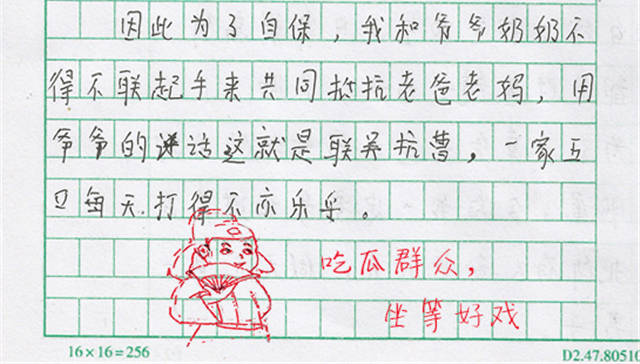 因此为了自保，我和爷爷奶奶不
得不联起手来共同抵抗老爸老妈，用
爷爷的话这就是联吴抗曹，一家五
口每天打得不亦乐乎。
吃瓜群众，
坐等好戏
16×16=256
D2.47.80510